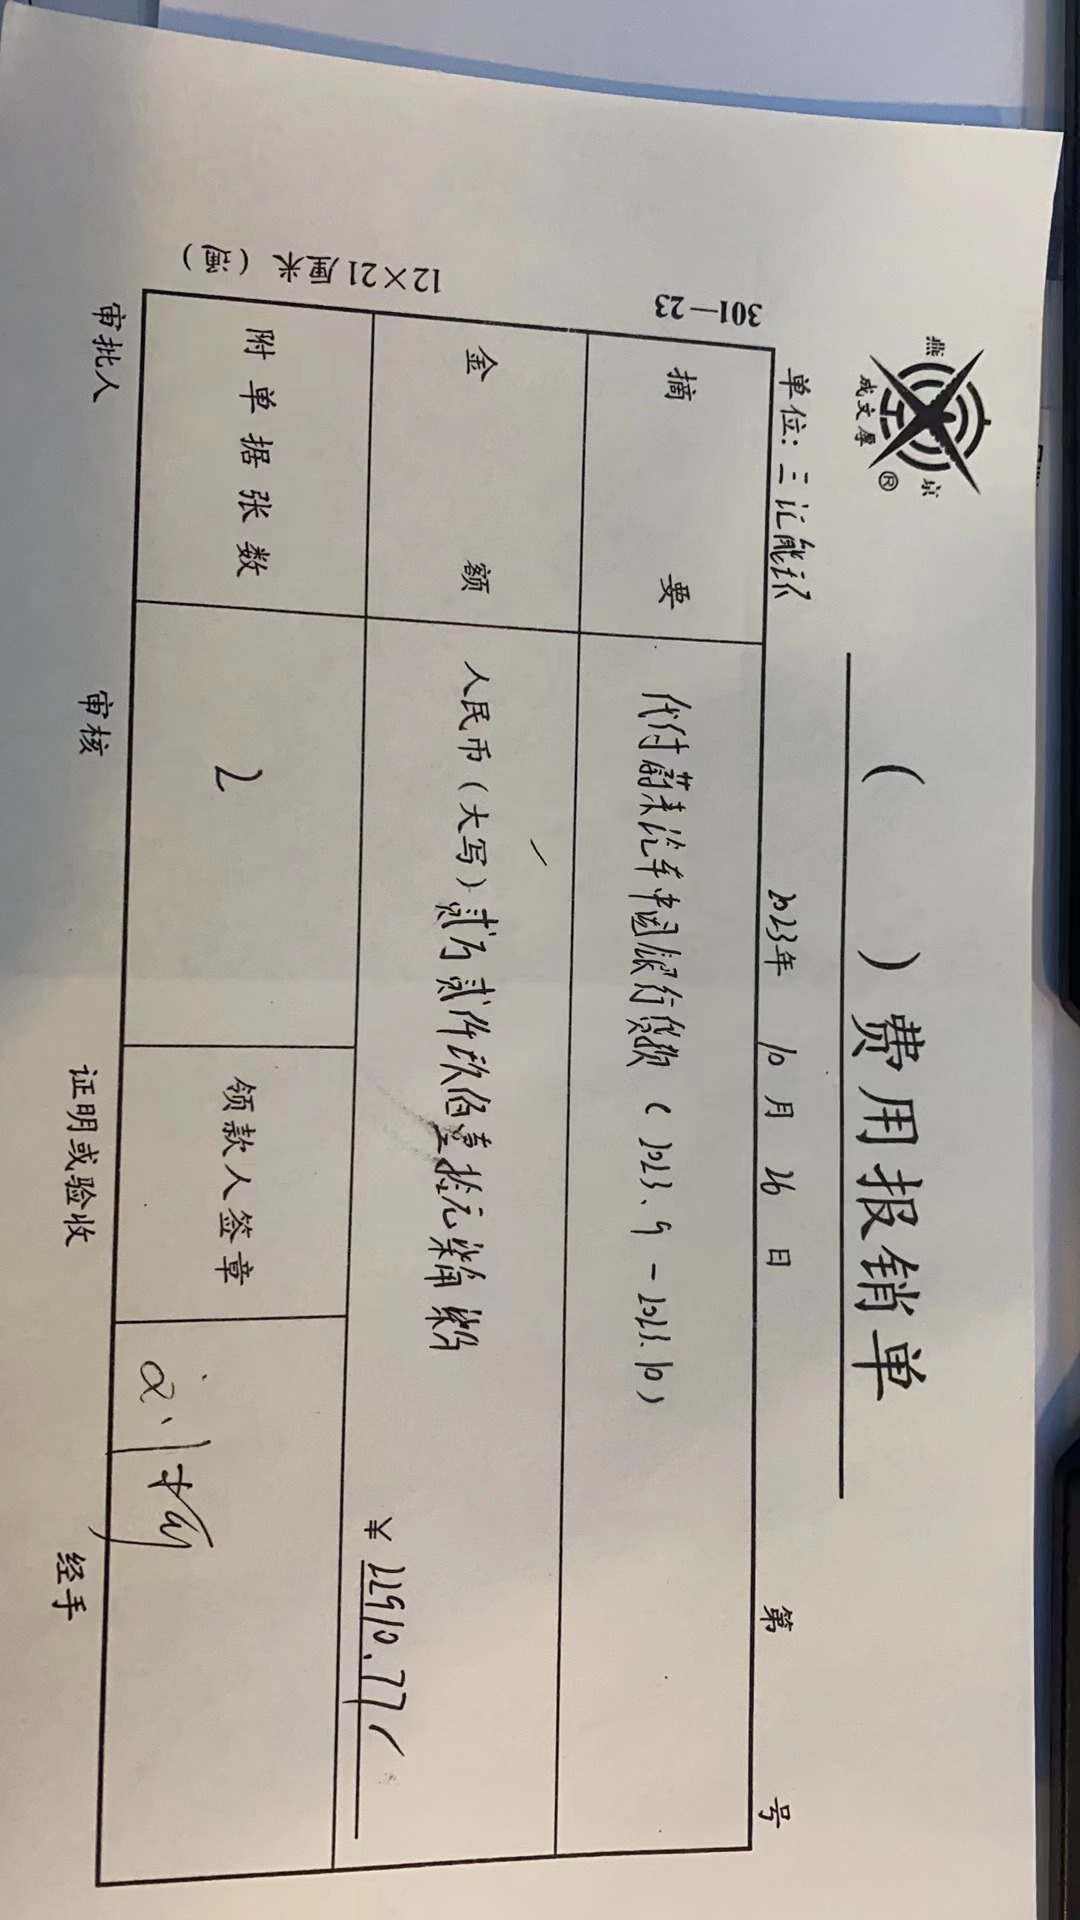 燕京
成文厚®
( )费用报销单
单位: 三汇能环 2023年 10月 26日 第 号
301—23
摘要 代付蔚来汽车中国银行贷款 (2023.9-2023.10)
金额 人民币(大写) 贰万贰仟玖佰壹拾元柒角柒分
¥22910.77
12×21厘米(通)
附单据张数 2 领款人签章
审批人 审核 证明或验收 经手